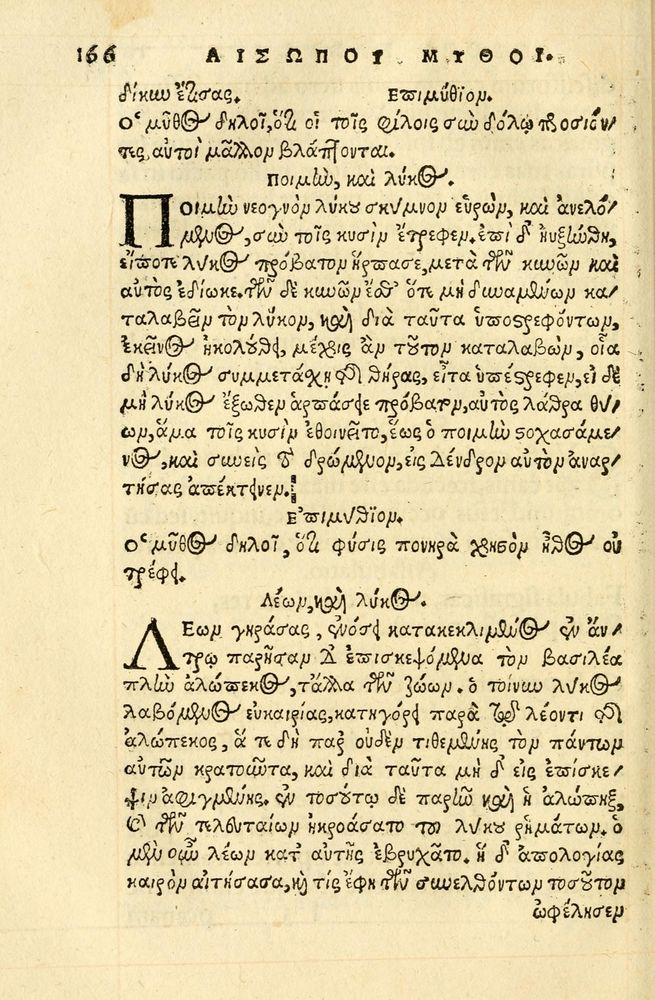 166 ΑΙΣΩΠΟΥ ΜΥΘΟΙ.
δίκην ἔτισας. Επιμύθιον.
Ο῾ μῦθος δηλοῖ, ὅτι οἱ τοῖς φίλοις σὺν δόλῳ προσιόν/
τες, αὐτοὶ μᾶλλον βλάπτονται.
Ποιμὴν, καὶ λύκος.
Ποιμὴν νεογνὸν λύκου σκύμνον εὑρὼν, καὶ ἀνελό/
μενος, σὺν τοῖς κυσὶν ἔτρεφεν. ἐπεὶ δ' ηὐξήθη,
εἴποτε λύκος πρόβατον ἥρπασε, μετὰ τῶν κυνῶν καὶ
αὐτὸς ἐδίωκε. τῶν δὲ κυνῶν ἔσθ' ὅτε μὴ δυναμένων κα/
ταλαβεῖν τὸν λύκον, καὶ διὰ ταῦτα ὑποστρεφόντων,
ἐκεῖνος ἠκολούθει, μέχρις ἂν τοῦτον καταλαβὼν, οἷα
δὴ λύκος συμμετάσχῃ τῆς θήρας, εἶτα ὑπέστρεφεν, εἰ δὲ
μὴ λύκος ἔξωθεν ἁρπάσειε πρόβατον, αὐτὸς λάθρα θύ/
ων, ἅμα τοῖς κυσὶν ἐθοινεῖτο, ἕως ὁ ποιμὴν στοχασάμε/
νος, καὶ συνεὶς τὸ δρώμενον, εἰς δένδρον αὐτὸν ἀναρ/
τήσας ἀπέκτεινεν.
Ε᾿πιμύθιον.
Ο῾ μῦθος δηλοῖ, ὅτι φύσις πονηρὰ χρηστὸν ἦθος οὐ
τρέφει.
Λέων, καὶ λύκος.
Λέων γηράσας, ἐνόσει κατακεκλιμένος ἐν ἄν/
τρῳ παρῆσαν δ' ἐπισκεψόμενα τὸν βασιλέα
πλὴν ἀλώπεκος, τἄλλα τῶν ζώων. ὁ τοίνυν λύκος
λαβόμενος εὐκαιρίας, κατηγόρει παρὰ τῷ λέοντι τῆς
ἀλώπεκος, ἅ τε δὴ παρ' οὐδὲν τιθεμένης τὸν πάντων
αὐτῶν κρατοῦντα, καὶ διὰ ταῦτα μὴ δ' εἰς ἐπίσκε/
ψιν ἀφιγμένης. ἐν τοσούτῳ δὲ παρῆν καὶ ἡ ἀλώπηξ,
καὶ τῶν τελευταίων ἠκροάσατο τοῦ λύκου ῥημάτων. ὁ
μὲν οὖν λέων κατ' αὐτῆς ἐβρυχᾶτο. ἡ δ' ἀπολογίας
καιρὸν αἰτήσασα, καὶ τίς ἔφη τῶν συνελθόντων τοσοῦτον
ὠφέλησεν